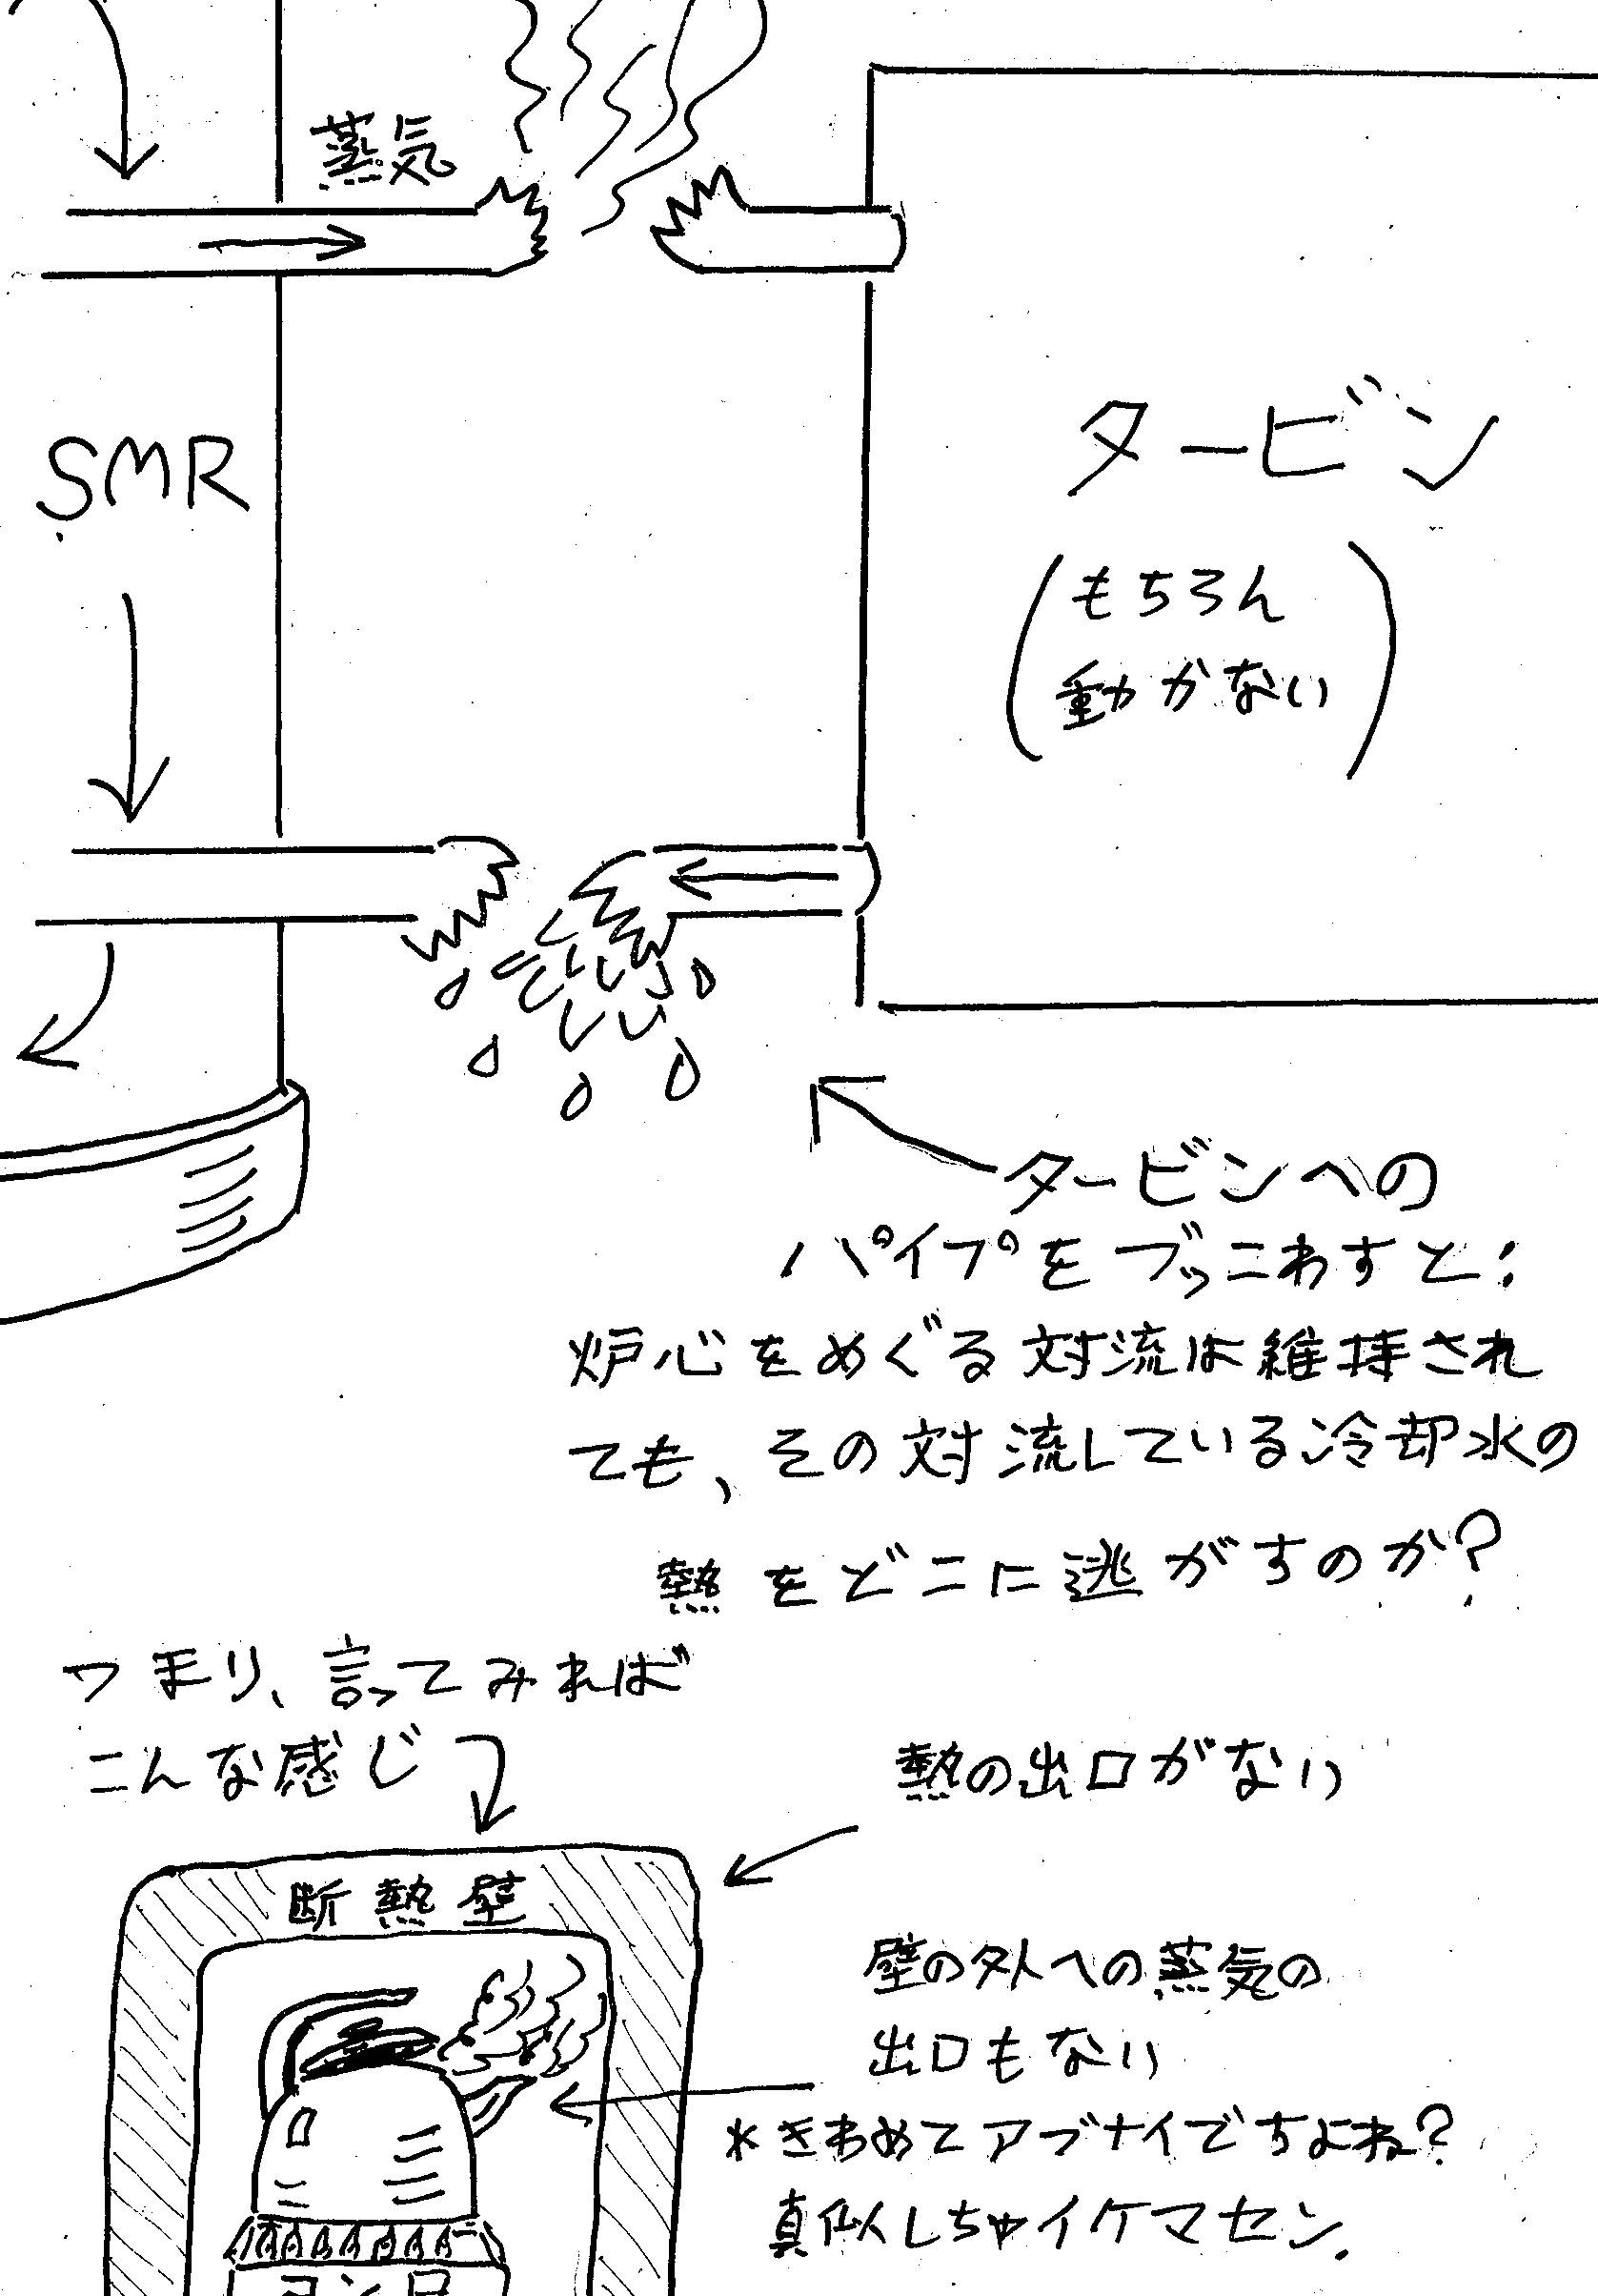 蒸気
SMR
タービン
(もちろん
動かない)
タービンへの
パイプをブッこわすと:
炉心をめぐる対流は維持され
ても、その対流している冷却水の
熱をどこに逃がすのか?
つまり、言ってみれば
こんな感じ
熱の出口がない
断熱壁
壁の外への蒸気の
出口もない
*きわめてアブナイですよね?
真似しちゃイケマセン.
コンロ